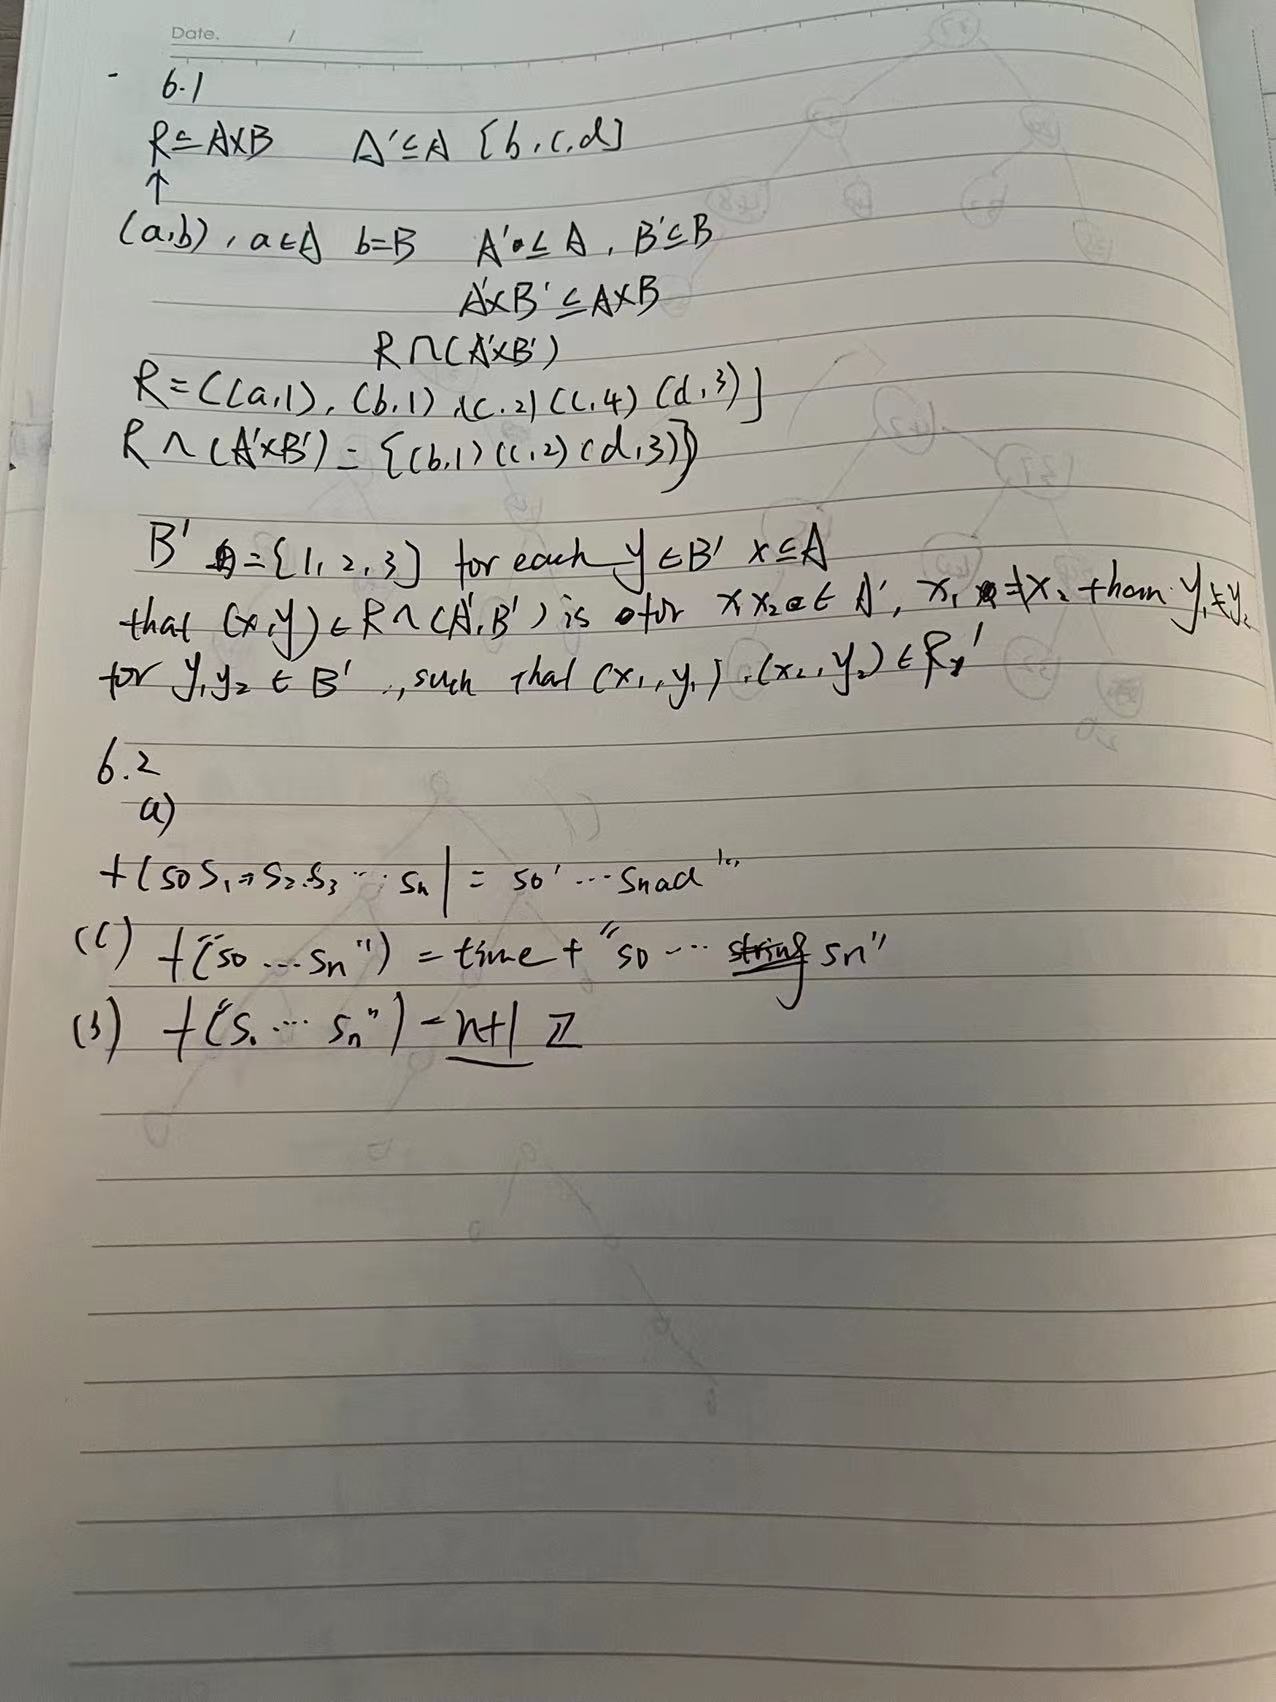 Date. /
6.1
R⊆A×B A'⊆A [b,c,d]
↑
(a,b), a∈A b=B A'⊆A, B'⊆B
A'×B'⊆A×B
R∩(A'×B')
R=((a,1), (b,1), (c.2) (c,4) (d,3)]
R∩(A'×B')={(b,1)(c,2)(d,3)}
B'={1,2,3] for each y∈B' x⊆A
that (x,y)∈R∩(A',B') is for x,x₂∈A', x₁≠x₂ than y₁≠y₂
for y,y₂∈B', such that (x₁,y₁).(x₂,y₂)∈R
6.2
a)
f(s0 s₁ s₂ s₃ ... sₙ)= s0' ...
(c) f("s0 ... sn")= time + "s0 ... sn"
f("s. ... sₙ")=n+1 ℤ